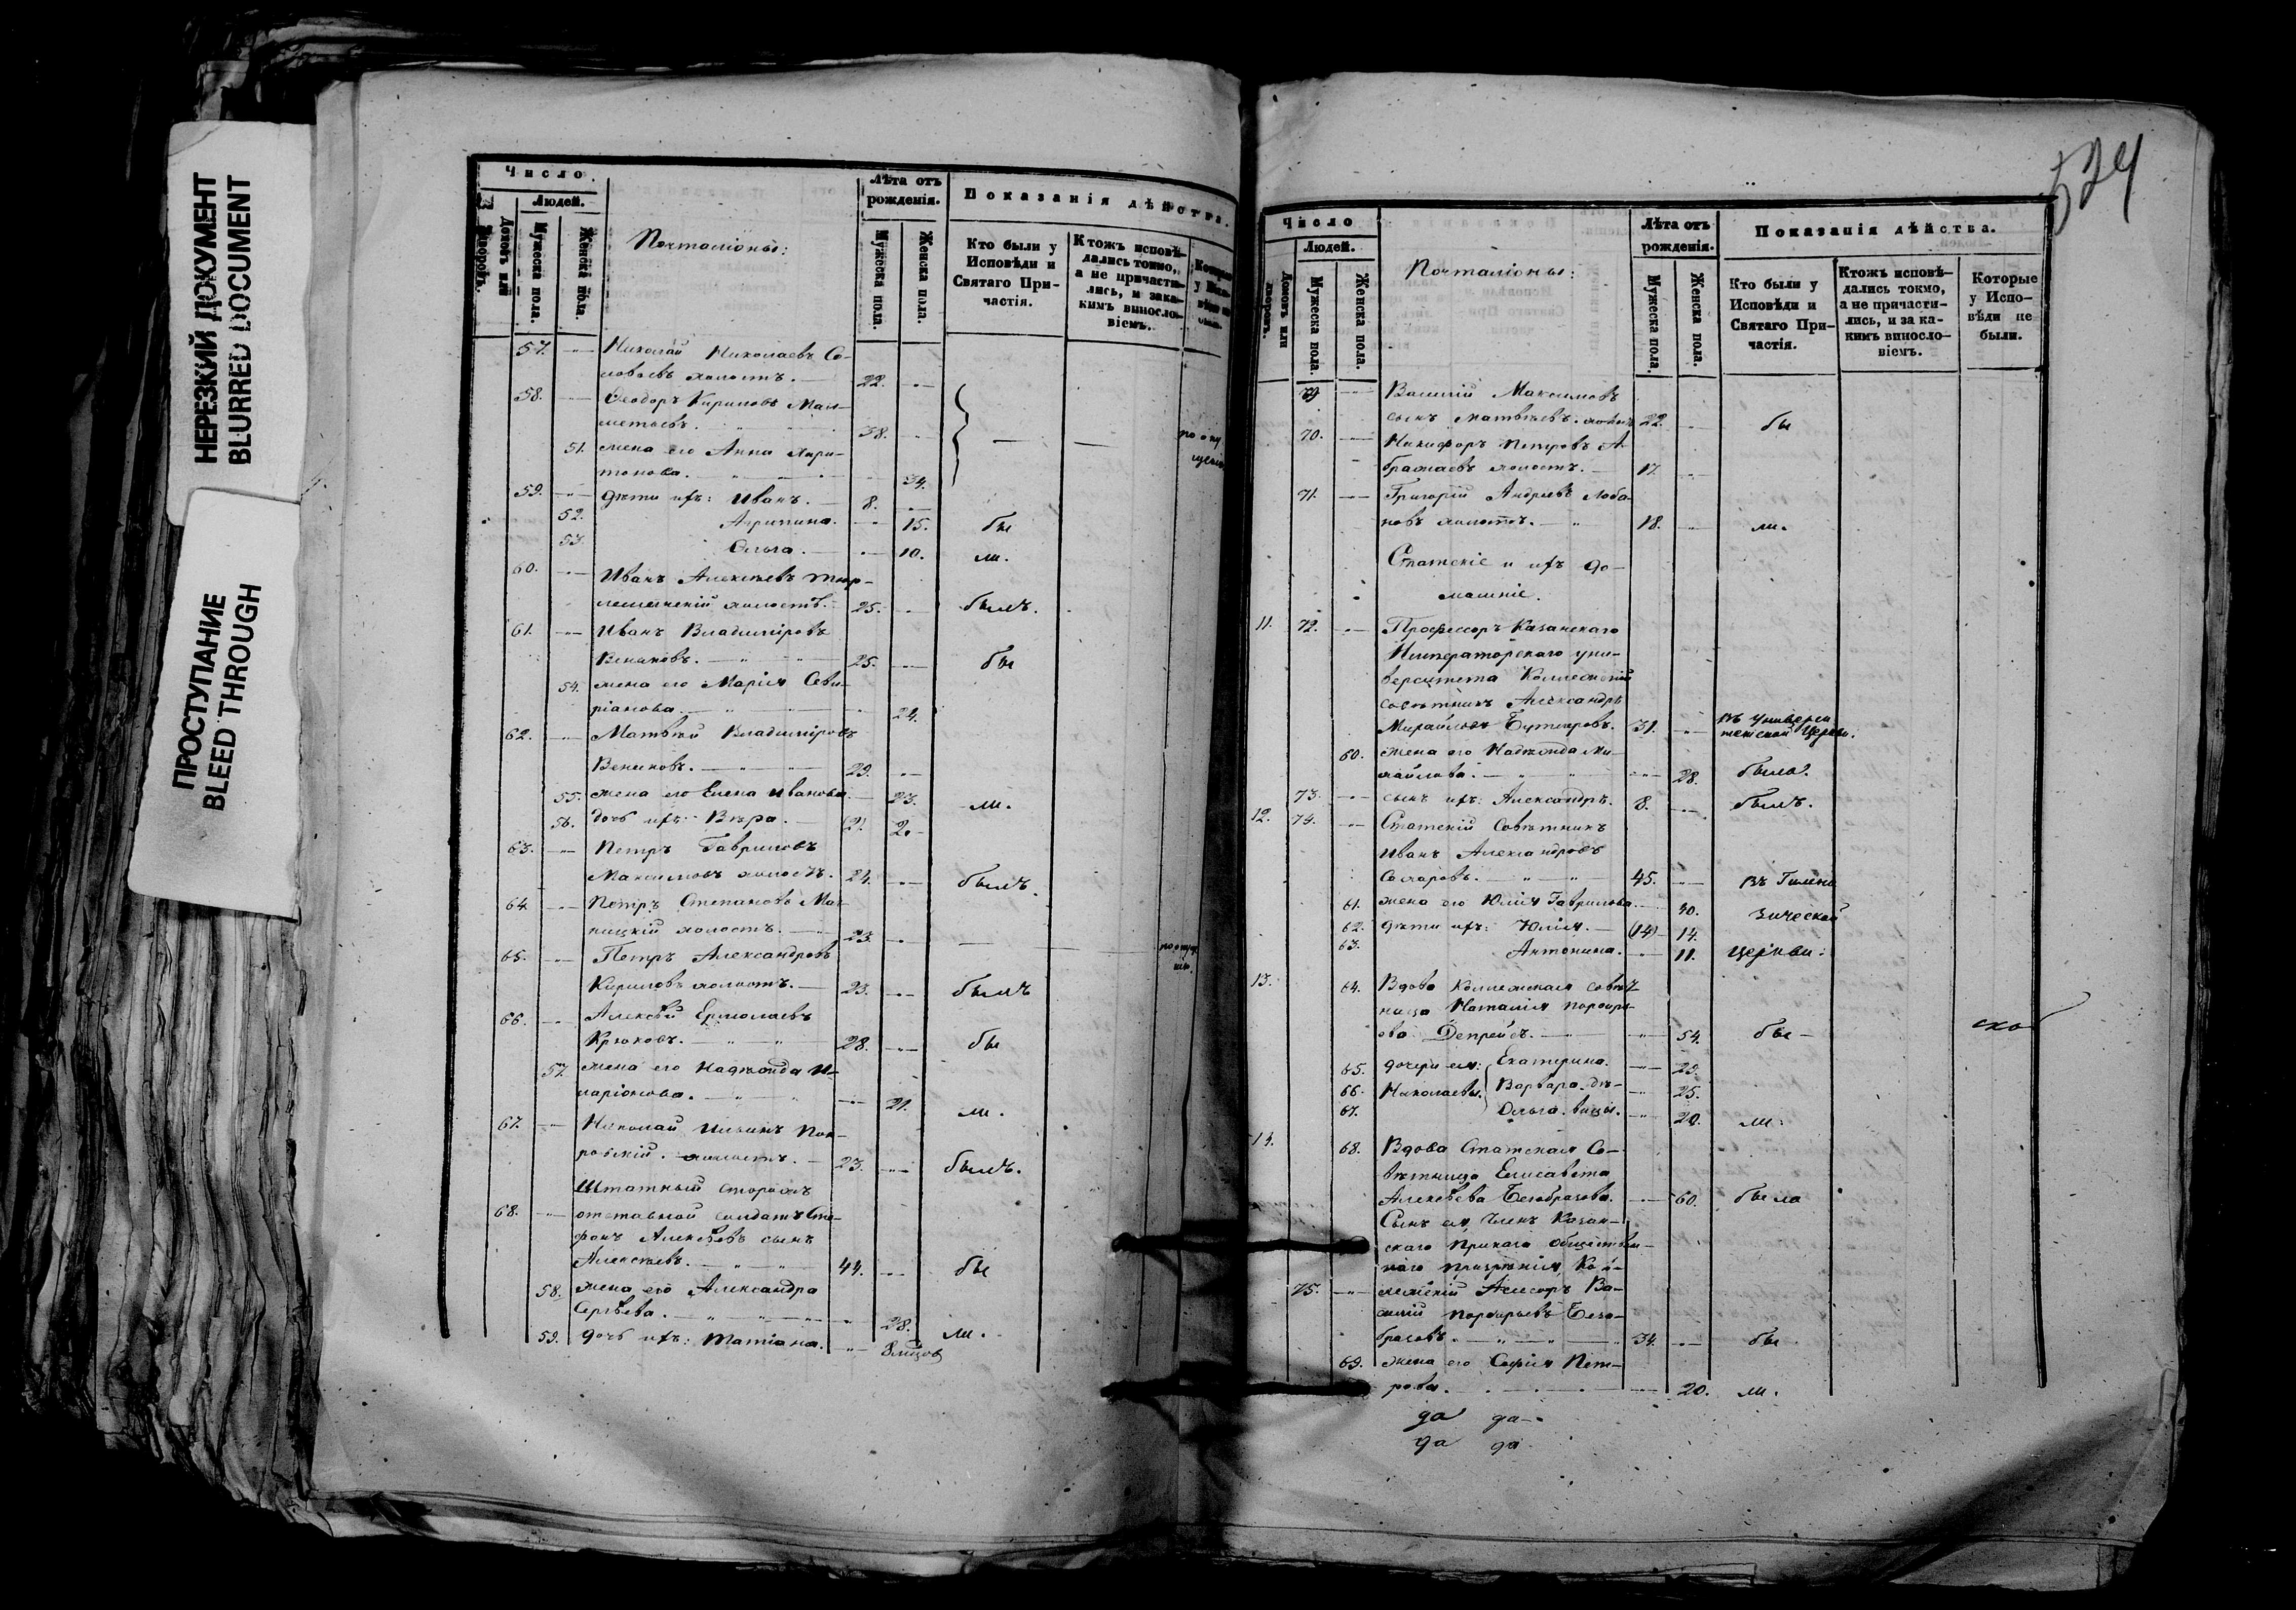 НЕРЕЗКИЙ ДОКУМЕНТ
BLURRED DOCUMENT
ПРОСТУПАНИЕ
BLEED THROUGH
Число.
Людей.
Домовъ или дворовъ.
Мужеска пола.
Женска пола.
Почталіоны:
Лѣта отъ рожденія.
Мужеска пола.
Женска пола.
Показанія дѣйства.
Кто были у Исповѣди и Святаго При-частія.
Ктожъ исповѣ-дались токмо, а не причасти-лись, и за ка-кимъ винosло-віемъ.
57. Николай Николаевъ Со-
ловьевъ холостъ. 22.
58. Ѳеодоръ Кириловъ
38.
51. жена его Анна Хари-
тонова. 34.
59. дѣти ихъ: Иванъ. 8.
52. Агрипина. 15. бы
53. Ольга. 10. ли.
60. Иванъ Алексѣевъ
холостъ. 25. былъ.
61. Иванъ Владиміровъ
25. бы
54. жена его Марія
24.
62. Матвѣй Владиміровъ
Вениковъ. 29.
55. жена его Елена Иванова. 23. ли.
56. дочь ихъ: Вѣра. (2) 2.
63. Петръ Гавриловъ
Максимовъ холостъ. 24. былъ.
64. Петръ Степановъ
холостъ. 23.
65. Петръ Александровъ
Кириловъ холостъ. 23. былъ
66. Алексѣй Ермолаевъ
Крюковъ. 28. бы
57. жена его Надежда И-
ларіонова. 21. ли.
67. Николай Ильинъ Пок-
ровскій. холостъ. 23. былъ.
Штатный сторожъ
68. отставной солдатъ Сте-
фанъ Алексѣевъ сынъ
Алексѣевъ. 44. бы
58. жена его Александра
Сергѣева. 28. ли.
59. дочь ихъ: Татіана. 8 мцов
524
Число
Людей.
Домовъ или дворовъ.
Мужеска пола.
Женска пола.
Почталіоны:
Лѣта отъ рожденія.
Мужеска пола.
Женска пола.
Показанія дѣйства.
Кто были у Исповѣди и Святаго При-частія.
Ктожъ исповѣ-дались токмо, а не причасти-лись, и за ка-кимъ виносло-віемъ.
Которые у Испо-вѣди не были.
69 Василій Максимовъ
сынъ Матвѣевъ. холостъ 22. бы
70. Никифоръ Петровъ А-
брамаевъ холостъ. 17.
71. Григорій Андреевъ Лоба-
новъ холостъ. 18. ли.
Статскіе и ихъ до-
машніе.
11. 72. Профессоръ Казанскаго
Императорскаго уни-
верситета Коллежскій
совѣтникъ Александръ
Михайловъ Бутлеровъ. 31. въ Универси
тетской Церкви.
60. жена его Надежда Ми-
хайлова. 28. была.
73. сынъ ихъ: Александръ. 8. былъ.
12. 74. Статскій Совѣтникъ
Иванъ Александровъ
Сахаровъ. 45. въ Гимна
61. жена его Юлія Гаврилова 40. зической
62. дѣти ихъ: Юлія. (14) 14.
63. Антонина. 11. церкви:
13. 64. Вдова Коллежская совѣт-
ница Наталія Порфирь-
ева Депрейсъ. 54. бы-
65. дочери ея: Екатерина. 29.
66. Николаевы. Варвара дѣ- 25.
67. Ольга. вицы. 20. ли.
14. 68. Вдова Статская Со-
вѣтница Елисавета
Алексѣева Безобразова. 60. была
Сынъ ея, Членъ Казан-
скаго Приказа Обществен-
наго призрѣнія, Кол-
75. лежскій Ассесоръ Ва-
силій Порфирьевъ Безо-
бразовъ. 34. бы
69. жена его Софія Пет-
рова. 20. ли.
да да
да да